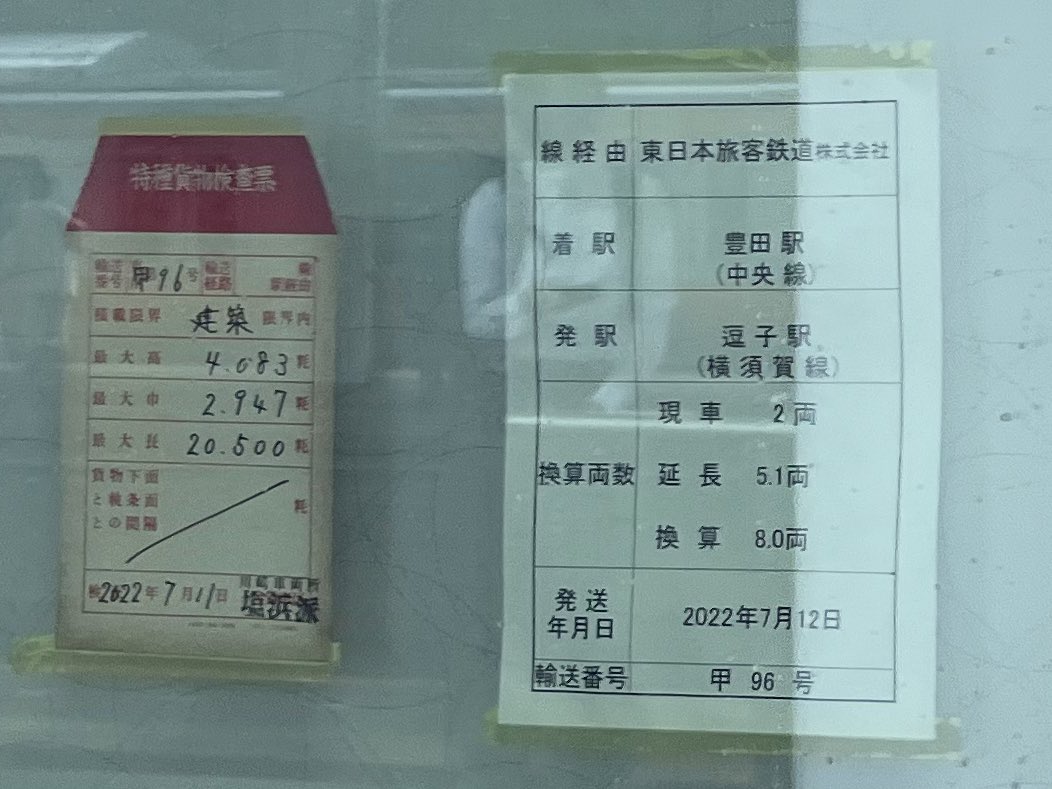 特種貨物検査票
輸送番号 甲96号 輸送経路
積載限界 建築 限界内
最大高 4.083 粍
最大巾 2.947 粍
最大長 20.500 粍
貨物下面
と軌条面 粍
との間隔
2022年7月11日
川崎車両所
塩浜派
線経由 東日本旅客鉄道株式会社
着駅 豊田駅
(中央線)
発駅 逗子駅
(横須賀線)
現車 2両
換算両数 延長 5.1両
換算 8.0両
発送
年月日 2022年7月12日
輸送番号 甲 96 号